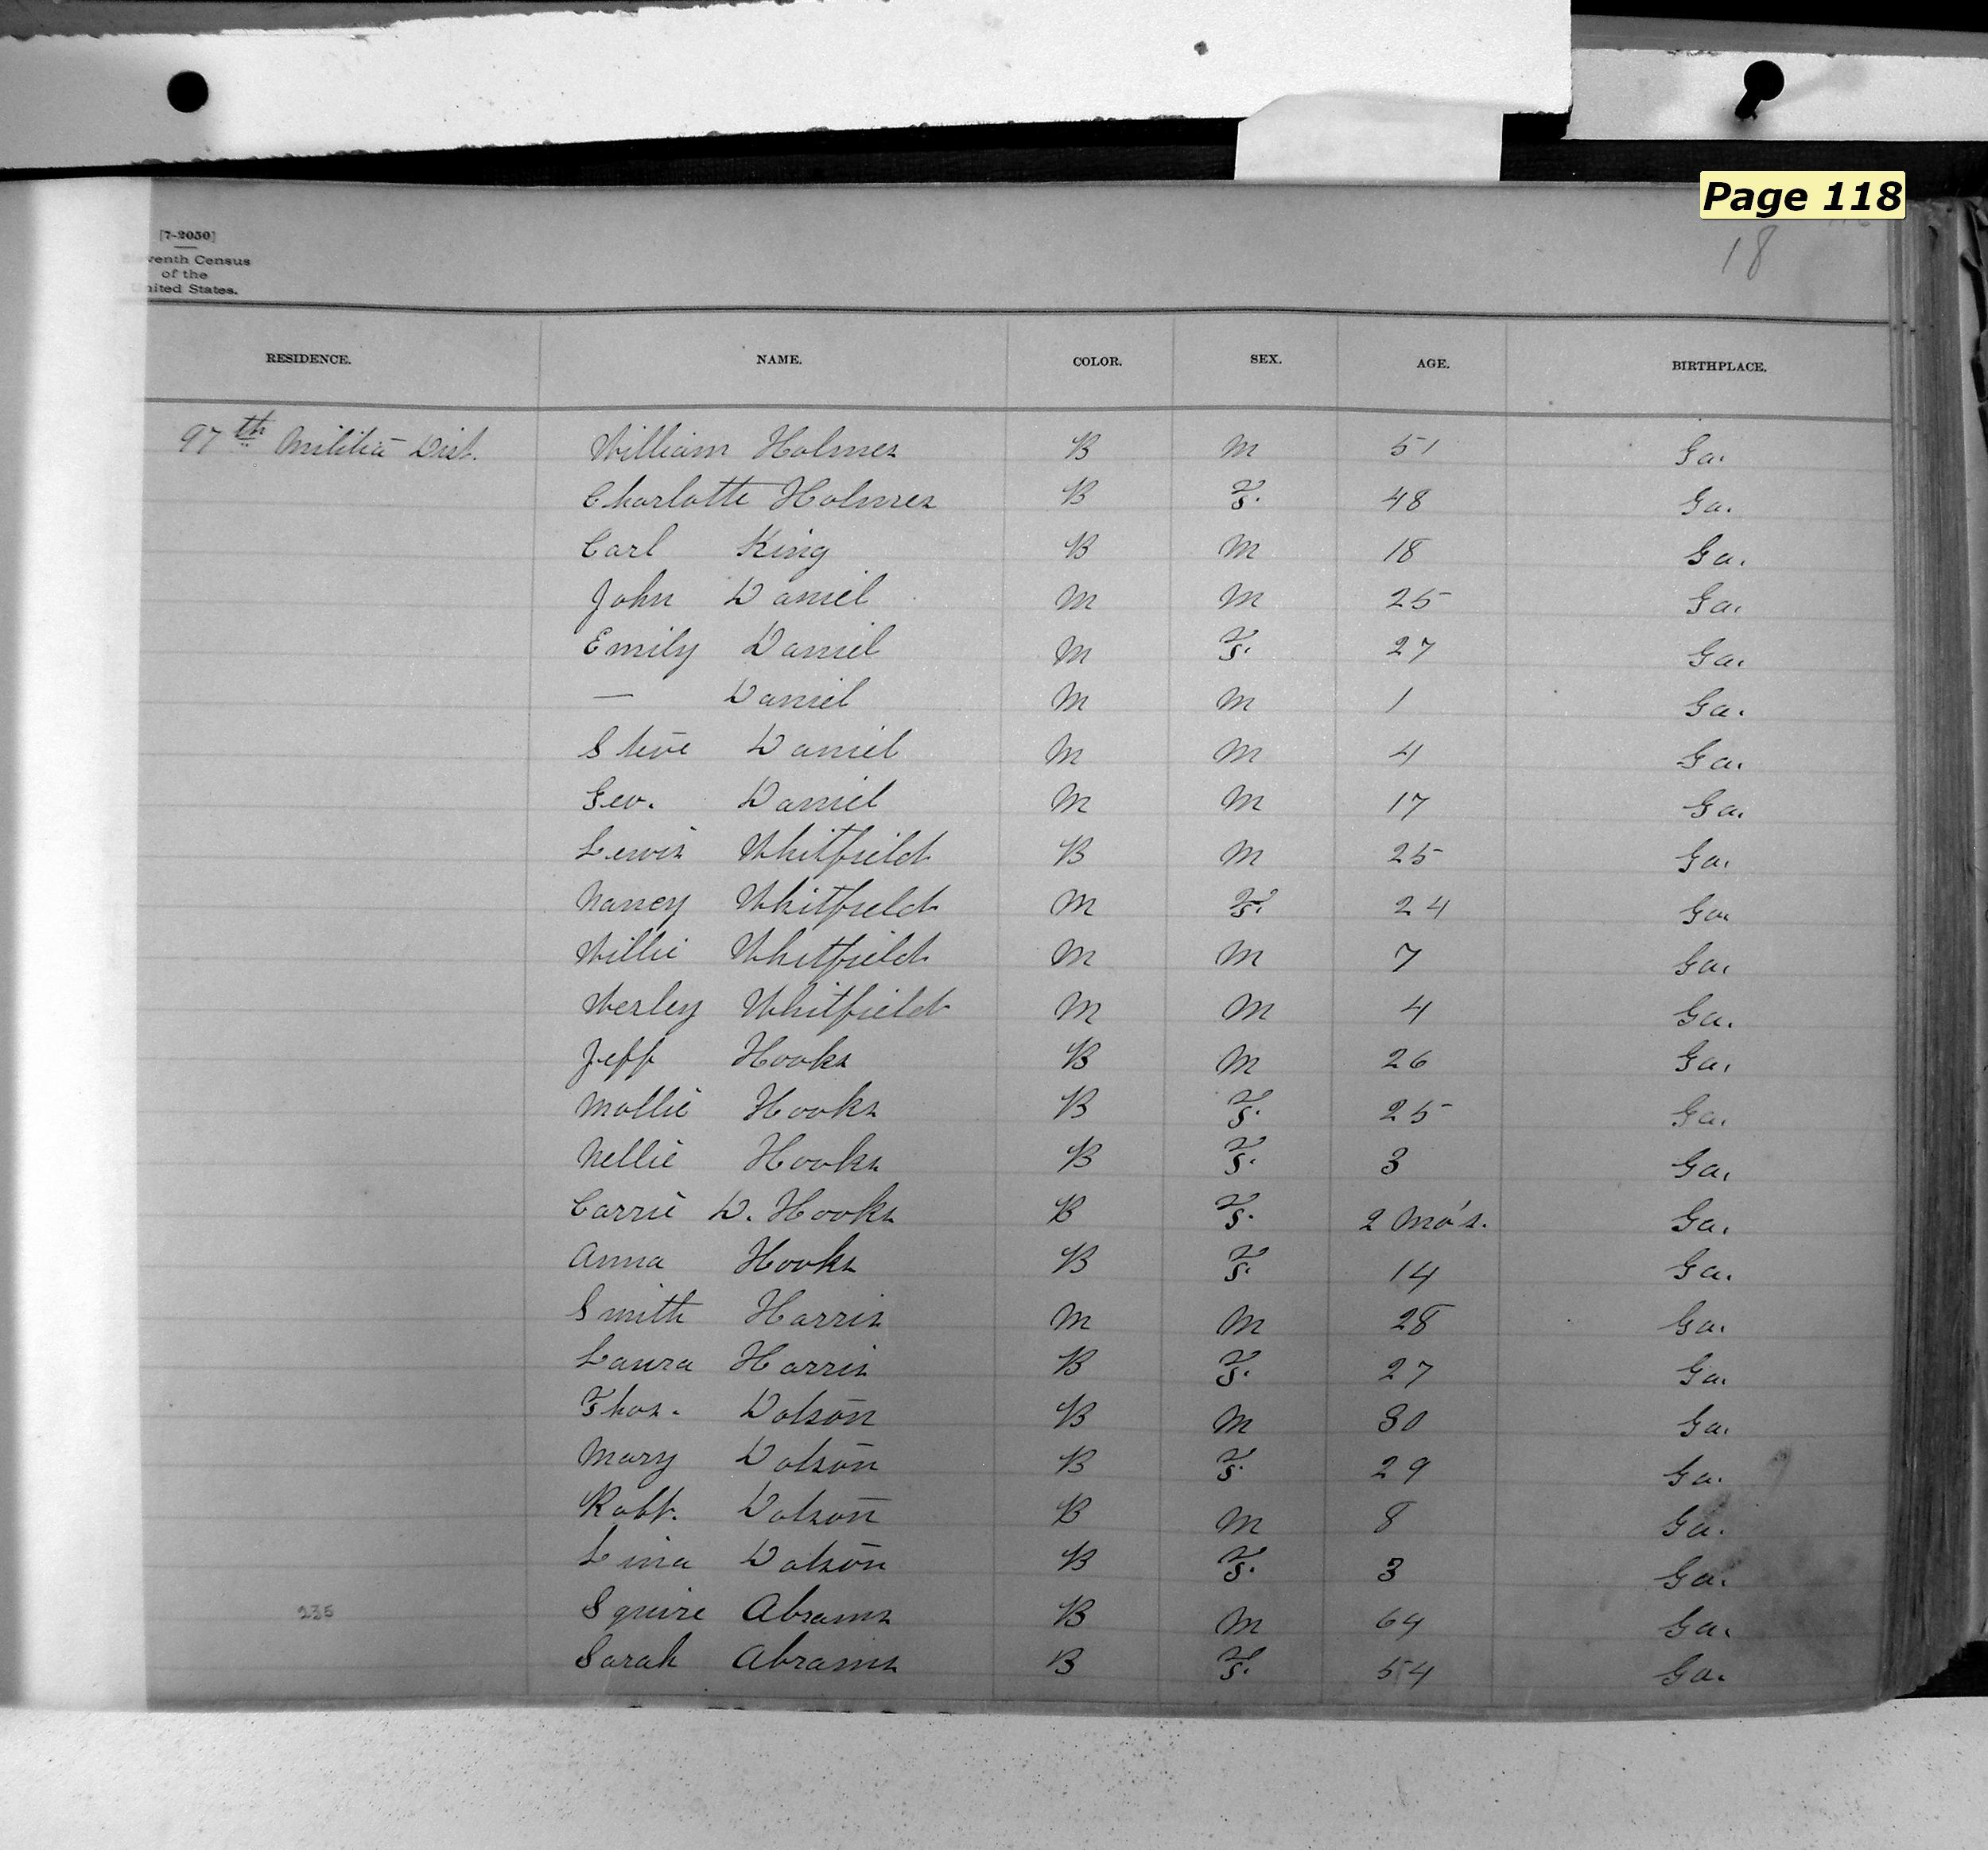 Page 118
18
[7-2050]
Eleventh Census
of the
United States.
RESIDENCE. NAME. COLOR. SEX. AGE. BIRTHPLACE.
97th Militia Dist. William Holmes B M 51 Ga.
Charlotte Holmes B F. 48 Ga.
Carl King B M 18 Ga.
John Daniel M M 25 Ga.
Emily Daniel M F. 27 Ga.
— Daniel M M 1 Ga.
Steve Daniel M M 4 Ga.
Geo. Daniel M M 17 Ga.
Lewis Whitfield B M 25 Ga.
Nancy Whitfield M F. 24 Ga
Willie Whitfield M M 7 Ga.
Wesley Whitfield M M 4 Ga.
Jeff Hooks B M 26 Ga.
Mollie Hooks B F. 25 Ga.
Nellie Hooks B F. 3 Ga.
Carrie D. Hooks B F. 2 Mo's. Ga.
Anna Hooks B F. 14 Ga.
Smith Harris M M 28 Ga.
Laura Harris B F. 27 Ga.
Thos. Dotson B M 30 Ga.
Mary Dotson B F. 29 Ga.
Robt. Dotson B M 8 Ga.
Lina Dotson B F. 3 Ga.
235 Squire Abrams B M 64 Ga.
Sarah Abrams B F. 54 Ga.